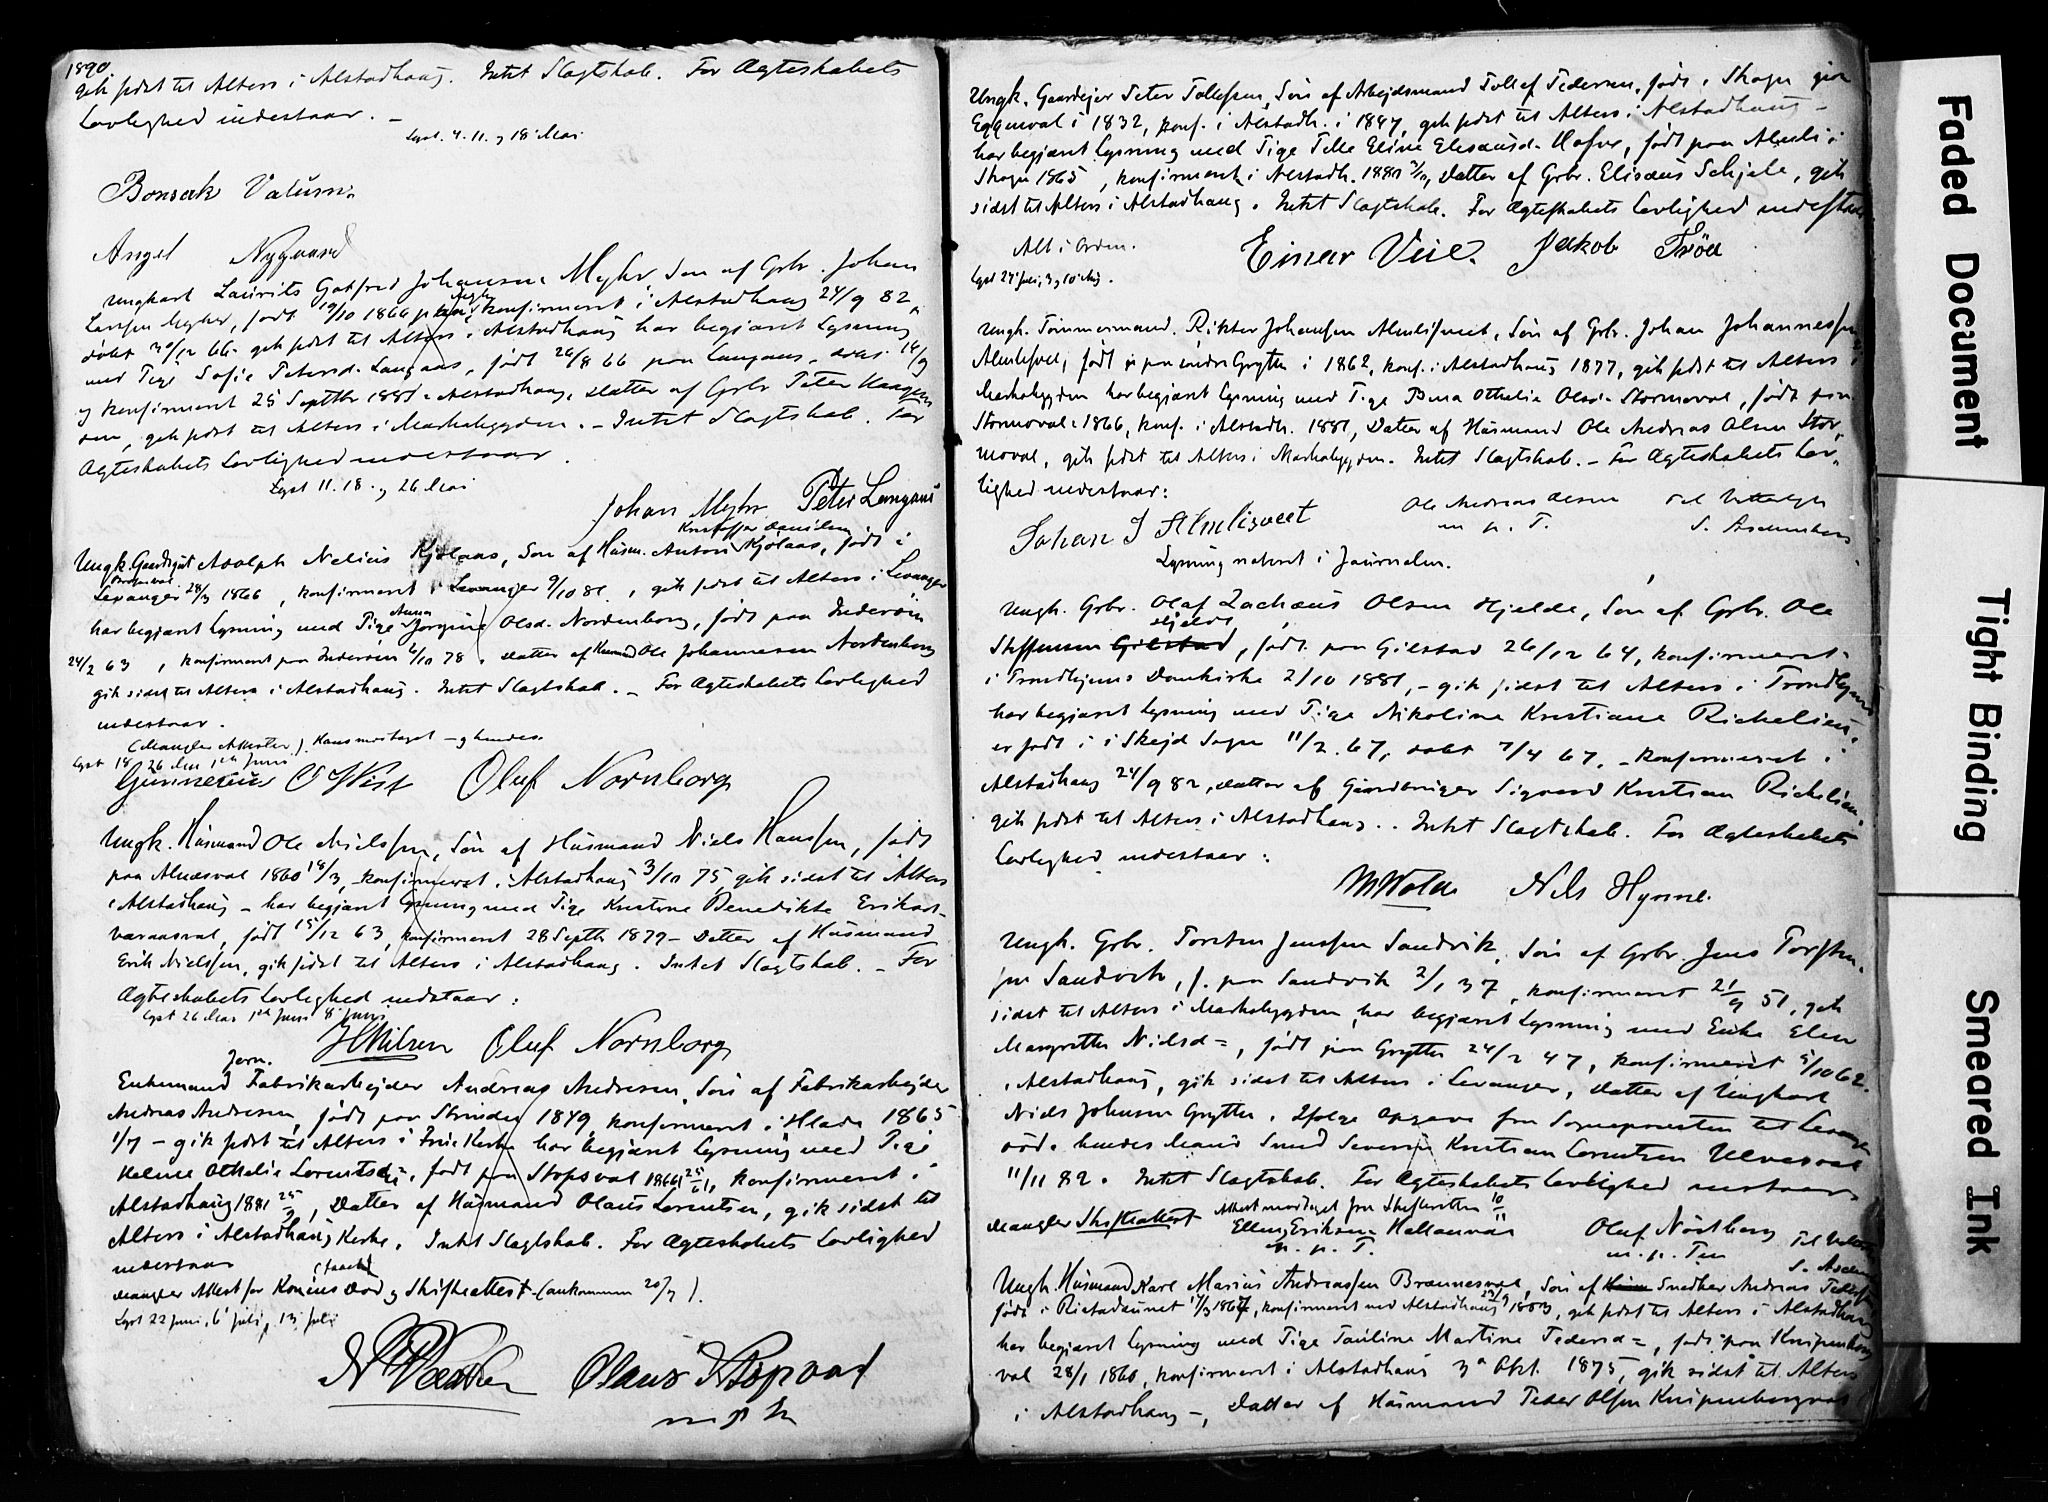 1890
gik sidst til Alters i Alstadhaug. Intet Slagtskab. For Ægteskabets
Lovlighed indestaar. –
Lyst. 4. 11. og 18 Mai
Bonsak Valum
Angel Nygaard
Ungkarl Laurits Gotfred Johansen Myhr, Søn af Gbr. Johan
Larsen Myhr, født 19/10 1866 paa Myhr, konfirmeret i Alstadhaug 24/9 82,
døbt 30/12 66. gik sidst til Alters i Alstadhaug har begjæret Lysning
med Pige Sofie Petersd. Langaas, født 26/8 66 paa Langaas, 
og konfirmeret 25 Septbr 1881 i Alstadhaug, Datter af Gbr Peter Haagen
sen, gik sidst til Alters i Markabygden. – Intet Slagtskab. For
Ægteskabets Lovlighed indestaar.
Lyst 11. 18. og 26 Mai
Johan Myhr Peter Langaas
Kristoffer Danielsen
Ungk. Adolph Nelius Kjølaas, Søn af Husm. Anton Kjølaas, født i
Levanger 28/3 1866, konfirmeret i Levanger 9/10 81, gik sidst til Alters i Levanger
Anna
har begjæret Lysning med Pige Jørgine Olsd. Nordenborg, født paa Inderøen
24/2 63, konfirmeret paa Inderøen 6/10 78. Datter af Ole Johannesen Nordenborg
gik sidst til Alters i Alstadhaug. Intet Slagtskab. – For Ægteskabets Lovlighed
indestaar.
(Mangler Attester). Hans modtaget – og hendes.
Lyst 18, 26 Mai 1ste Juni
Gunnerius O Vist Oluf Nornborg
Ungk. Husmand Ole Nielssen, Søn af Husmand Niels Hanssen, født
paa 1860 18/3, konfirmeret i Alstadhaug 3/10 75, gik sidst til Alters
i Alstadhaug – har begjæret Lysning med Pige Kristine Benedikte Eriksd.
født 15/12 63, konfirmeret 28 Septb 1879 – Datter af Husmand
Erik Nielssen, gik sidst til Alters i Alstadhaug. Intet Slagtskab. – For
Ægteskabets Lovlighed indestaar:
Lyst 26 Mai 1ste Juni 8 Juni
H Nilsen Oluf Nornborg
Jern.
Enkemand Fabrikarbejder Andreas Andresen, Søn af Fabrikarbejder
Andreas Andresen, født paa Strinden 1849, konfirmeret i Hlade 1865
1/7 – gik sidst til Alters i Kirke har begjæret Lysning med Pige
Othelie Lorentsd., født paa Stopsval 1866, konfirmeret i
Alstadhaug 1881 25/9, Datter af Husmand Olaus Lorentsen, gik sidst til
Alters i Alstadhaug Kirke. Intet Slagtskab. For Ægteskabets Lovlighed
indestaar
Mangler Attest for Konens Død og Skifteattest (ankommen 20/7).
Lyst 22 Juni, 6 Juli, 13 Juli
Olaus Stopvald
Ungk. Gaardejer Peter Tollefsen, Søn af Arbejdsmand Tollef Pedersen, født i Skogn paa
i 1832, konf. i Alstadh. i 1847, gik sidst til Alters i Alstadhaug –
har begjæret Lysning med Pige Elisæusd. født paa i
Skogn 1865, konfirmeret i Alstadh. 1881, Datter af Gbr. Elisæus Schjele, gik
sidst til Alters i Alstadhaug. Intet Slagtskab. For Ægteskabets Lovlighed indestaar
Alt i Orden.
Lyst 27 Juli, 3 og 10 Aug.
Einar Veie. Jakob Trøa
Ungk. Tømmermand, Rikter Johansen Almlisveet, Søn af Gbr. Johan Johannessen
født paa indre Grytte i 1862, konf. i Alstadhaug 1877, gik sidst til Alters i
Markabygden har begjæret Lysning med Pige Othelie Olsd. Stormoval, født paa
Stormoval 1866, konf. i Alstadh. 1881, Datter af Husmand Ole Andreas Olsen Stor
moval, gik sidst til Alters i Markabygden. Intet Slagtskab. – For Ægteskabets Lov
lighed indestaar:
Johan J Almlisveet Ole Andreas Olsen
m. p. P.
Lysning noteret i Journalen.
Ungk. Gbr. Olaf Zachæus Olsen Hjelde, Søn af Gbr. Ole
Hjelde
Steffensen Gilstad, født paa Gilstad 26/12 64, konfirmeret
i Trondhjems Domkirke 2/10 1881, – gik sidst til Alters i Trondhjem
har begjæret Lysning med Pige Nikoline Kristiane Richelieu
er født i Skejd Sogn 11/2 67, døbt 7/4 67, – konfirmeret i
Alstadhaug 24/9 82, Datter af Gaardbruger Sigvard Kristian Richelieu
gik sidst til Alters i Alstadhaug. Intet Slagtskab. For Ægteskabets
Lovlighed indestaar:
Nils Hynne.
Ungk. Gbr. Torsten Jenssen Sandvik, Søn af Gbr. Jens Torsten
sen Sandvik, f. paa Sandvik 2/1 37, konfirmeret 21/9 51, gik
sidst til Alters i Markabygden har begjæret Lysning med Enke Elen
Margrethe Nielsd =, født paa Grytte 24/2 47, konfirmeret 5/10 62
i Alstadhaug, gik sidst til Alters i Levanger, Datter af Ungkarl
Niels Johnsen Grytte. Ifølge Opgave fra Sognepresten til Levanger
døde hendes Mand Smed Severin Kristian Lorentsen
11/11 82. Intet Slagtskab. For Ægteskabets Lovlighed indestaar
Mangler Skifteattest Attest modtaget fra Skifteretten 10/11
Elling Eriksen Hallanvar
m. p. P.
Oluf Nordborg
Ungk. Husmand Karl Marius Andreassen Brannesval, Søn af Snedker Andreas
født i 17/3 1867, konfirmeret ved Alstadhaug 1883, gik sidst til Alters i Alstadhaug
har begjæret Lysning med Pige Pauline Martine Pedersd =, født paa Knipenborg
val 28/1 1860, konfirmeret i Alstadhaug 3 Okt. 1875, gik sidst til Alters
i Alstadhaug –, Datter af Husmand Peder Olsen Knipenborgval
Faded Document
Tight Binding
Smeared Ink